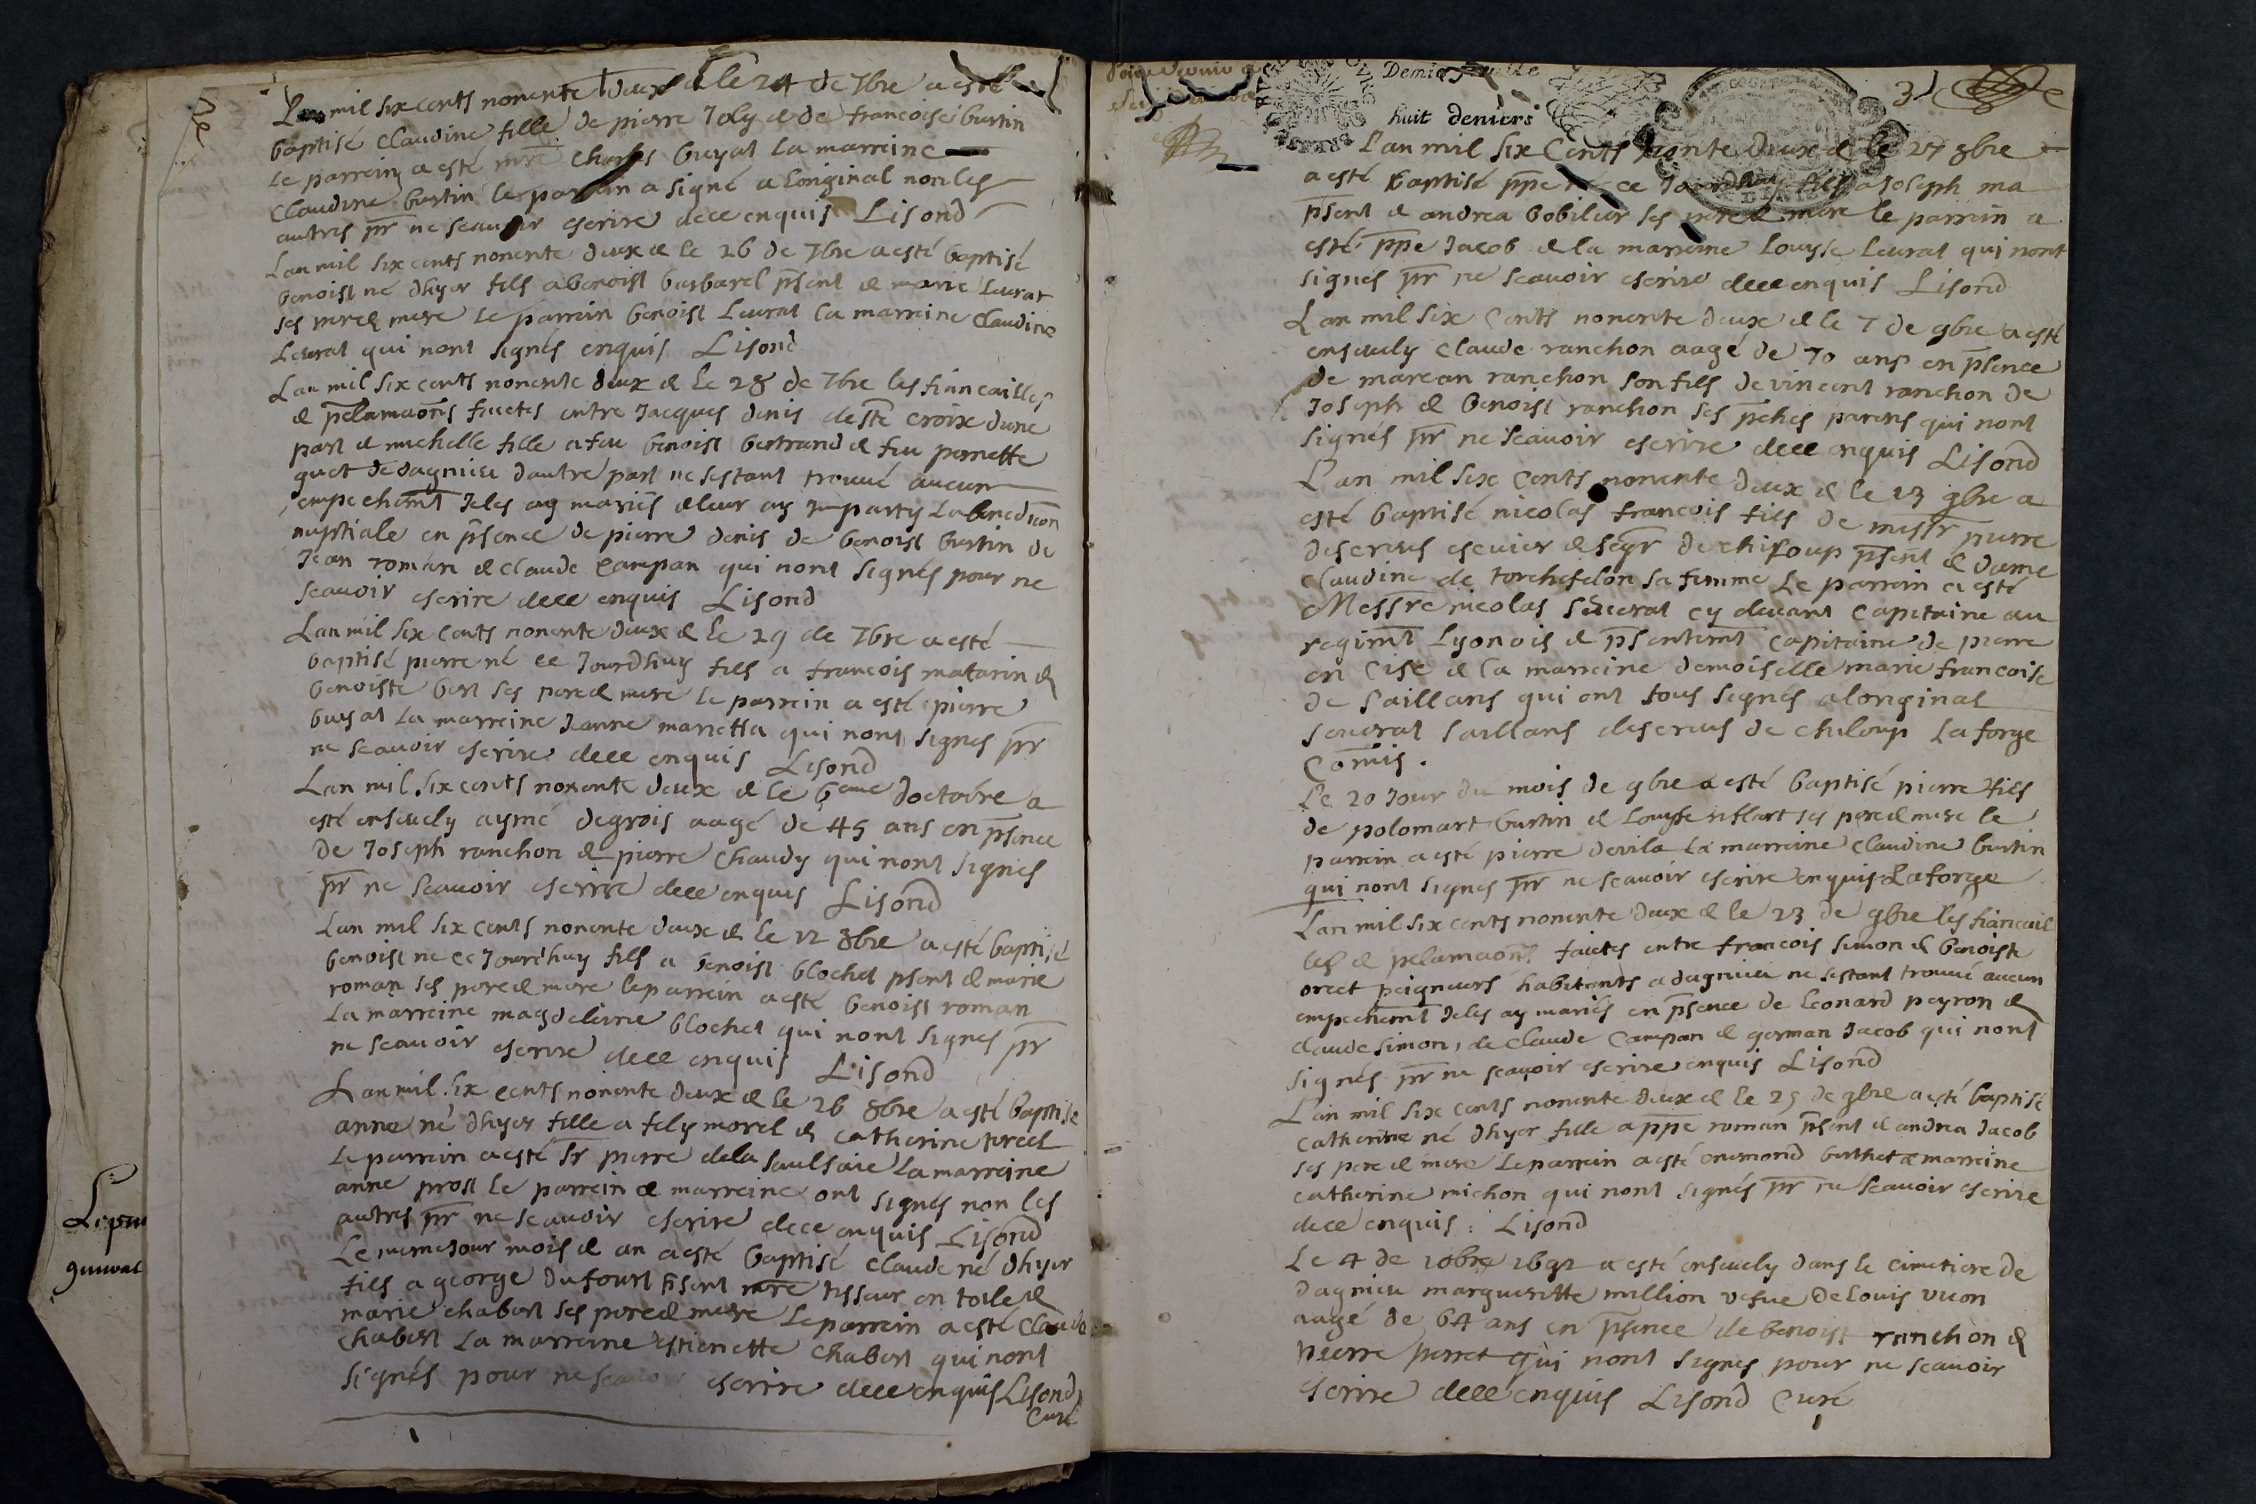 Lan mil six cents nonente deux & le 24 de 7bre a esté
baptisé Claudine fille de pierre Joly & de francoise burtin
le parrein a esté mre Charles buyat la marreine
Claudine burtin le parrain a signé a loriginal non les
autres pr ne scauoir escrire dece enquis Lisond
Lan mil six cents nonente deux & le 26 de 7bre a esté baptisé
benoist né dhyer fils a benoist barbarel psent & marie Leurat
ses pere & mere le parrein benoist Leurat la marreine Claudine
Leurat qui nont signés enquis Lisond
Lan mil six cents nonente deux & le 28 de 7bre les fiancailles
& pclamaons faictes entre Jacques denis de ste croix dune
part & michelle fille a feu benoist bertrand & feu pernette
guet de dagnieu dautre part ne sestant trouué aucun
empechemt Je les ay mariés & leur ay Imparty la benediction
nuptiale en psence de pierre denis de benoist burtin de
Jean roman & claude Campan qui nont signés pour ne
scauoir escrire dece enquis Lisond
Lan mil six cents nonente deux & le 29 de 7bre a esté
baptisé pierre né ce Jourdhuy fils a francois matarin &
benoiste bert ses pere & mere le parrein a esté pierre
buyat la marreine Jeanne marietta qui nont signés pr
ne scauoir escrire dece enquis Lisond
Lan mil six cents nonente deux & le 6eme doctobre a
esté enseuely aymé degrois aagé de 45 ans en psence
de Joseph ranchon & pierre Chaudy qui nont signés
pr ne scauoir escrire dece enquis Lisond
Lan mil six cents nonente deux & le 12 8bre a esté baptisé
benoist ne ce Jourdhuy fils a benoist blochet psent & marie
roman ses pere & mere le parrein a esté benoist roman
la marreine magdeleine blochet qui nont signés pr
ne scauoir escrire dece enquis Lisond
Lan mil six cents nonente deux & le 26 8bre a esté baptise
anne né dhyer fille a fely morel & catherine
le parrein a esté sr pierre dela saulsaie la marreine
anne prost le parrein & marreine ont signés non les
autres pr ne scauoir escrire dece enquis Lisond
Le meme Jour mois & an a esté baptisé claude né dhyer
fils a george dufourt psent mre tisseur en toile &
marie chabert ses pere & mere le parrein a esté claude
chabert la marreine estienette chabert qui nont
signés pour ne scauoir escrire dece enquis Lisond
Curé
Demie feuille
huit deniers
3
Lan mil six Cents nonente deux & le 27 8bre
a esté baptisé ppe né ce Jourdhuy fils a Joseph ma
psent & andrea bobilier ses pere & mere le parrein a
esté ppe Jacob & la marreine Louyse Leurat qui nont
signés pr ne scauoir escrire dece enquis Lisond
Lan mil six Cents nonente deux & le 7 de 9bre a esté
enseuely claude ranchon aagé de 70 ans en psence
de marcan ranchon son fils de vincent ranchon de
Joseph & benoist ranchon ses pches parens qui nont
signés pr ne scauoir escrire dece enquis Lisond
Lan mil six Cents nonente deux & le 13 9bre a
esté baptisé nicolas francois fils de messr pierre
descrues escuier & segr de chiloup psent & dame
Claudine de torchefelon sa femme le parrein a esté
Messre nicolas seuerat cy deuant Capitaine au
regimt Lyonois & psentemt Capitaine de pierre
en Cise & la marreine demoiselle marie francoise
de saillans qui ont tous signés a loriginal
seuerat saillans descrues de chiloup Laforge
Comis.
Le 20 Jour du mois de 9bre a esté baptisé pierre fils
de polomart burtin & Louyse riflart ses pere & mere le
parrein a esté pierre devila la marreine claudine burtin
qui nont signes pr ne scauoir escrire enquis Laforge
Lan mil six cents nonente deux & le 23 de 9bre les fiancail
les & pclamaons faictes entre francois simon & benoiste
orcet peigneurs habitants a dagnieu ne sestant trouué aucun
empechemt Je les ay mariés en psence de Leonard peyron &
claude simon, de claude Campan & german Jacob qui nont
signés pr ne scauoir escrire enquis Lisond
Lan mil six cents nonente deux & le 25 de 9bre a esté baptisé
catherine né dhyer fille a ppe roman psent & andrea Jacob
ses pere & mere Le parrein a esté enemond berthet & marreine
catherine michon qui nont signés pr ne scauoir escrire
dece enquis : Lisond
Le 4 de 10bre 1692 a esté enseuely dans le cimetiere de
dagnieu margueritte million vefue de Louis vuon
aagé de 64 ans en psence de benoist ranchon &
pierre perret qui nont signes pour ne scauoir
escrire dece enquis Lisond Curé